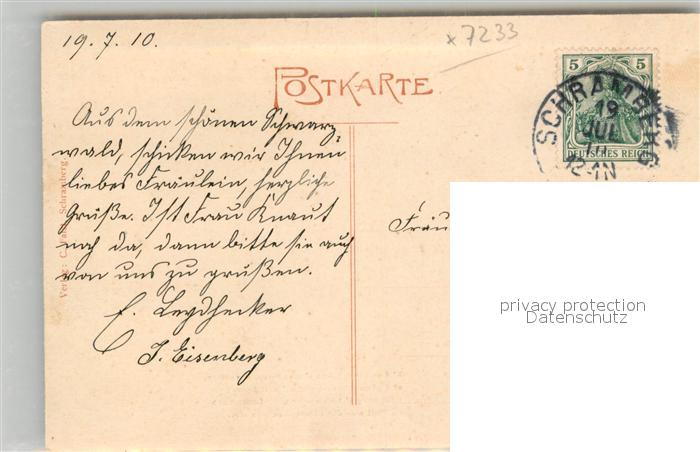 19. 7. 10.
x 7233
POSTKARTE
5 5
DEUTSCHES REICH
SCHRAMBERG
19
JUL
10
12-1N
Aus dem schönen Schwarz-
wald, schicken wir Ihnen
liebes Fräulein, herzliche
Grüße. Ist Frau Knaut
noch da, dann bitte sie auch
von uns zu grüßen.
E. Leydhecker
J. Eisenberg
Fräu
Verlag: C. Schramberg.
privacy protection
Datenschutz